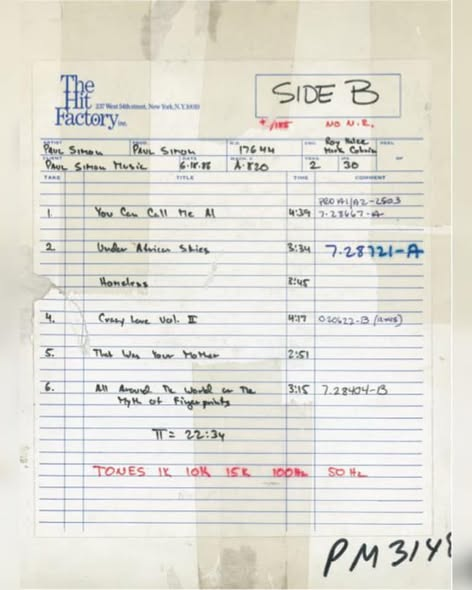 The
Hit
Factory INC. 237 West 54th street, New York, N.Y. 10019
SIDE B
+ /185 NO N.R.
ARTIST PROD. W.O. ENG. Roy Halee REEL
PAUL SIMON PAUL SIMON 17644 Mark Cobrin
CLIENT DATE OF
PAUL SIMON MUSIC 6.18.86 A-820 2 30
TAKE TITLE TIME COMMENT
PRO A1/A2-2503
1. You Can Call Me Al 4:39 7-28667-A
2. Under African Skies 3:34 7-28721-A
Homeless 3:45
4. Crazy Love Vol. II 4:17 020622-B
5. That Was Your Mother 2:51
6. All Around The World or The 3:15 7.28404-B
Myth of Fingerprints
TT= 22:34
TONES 1K 10K 15K 100Hz 50Hz
PM3148